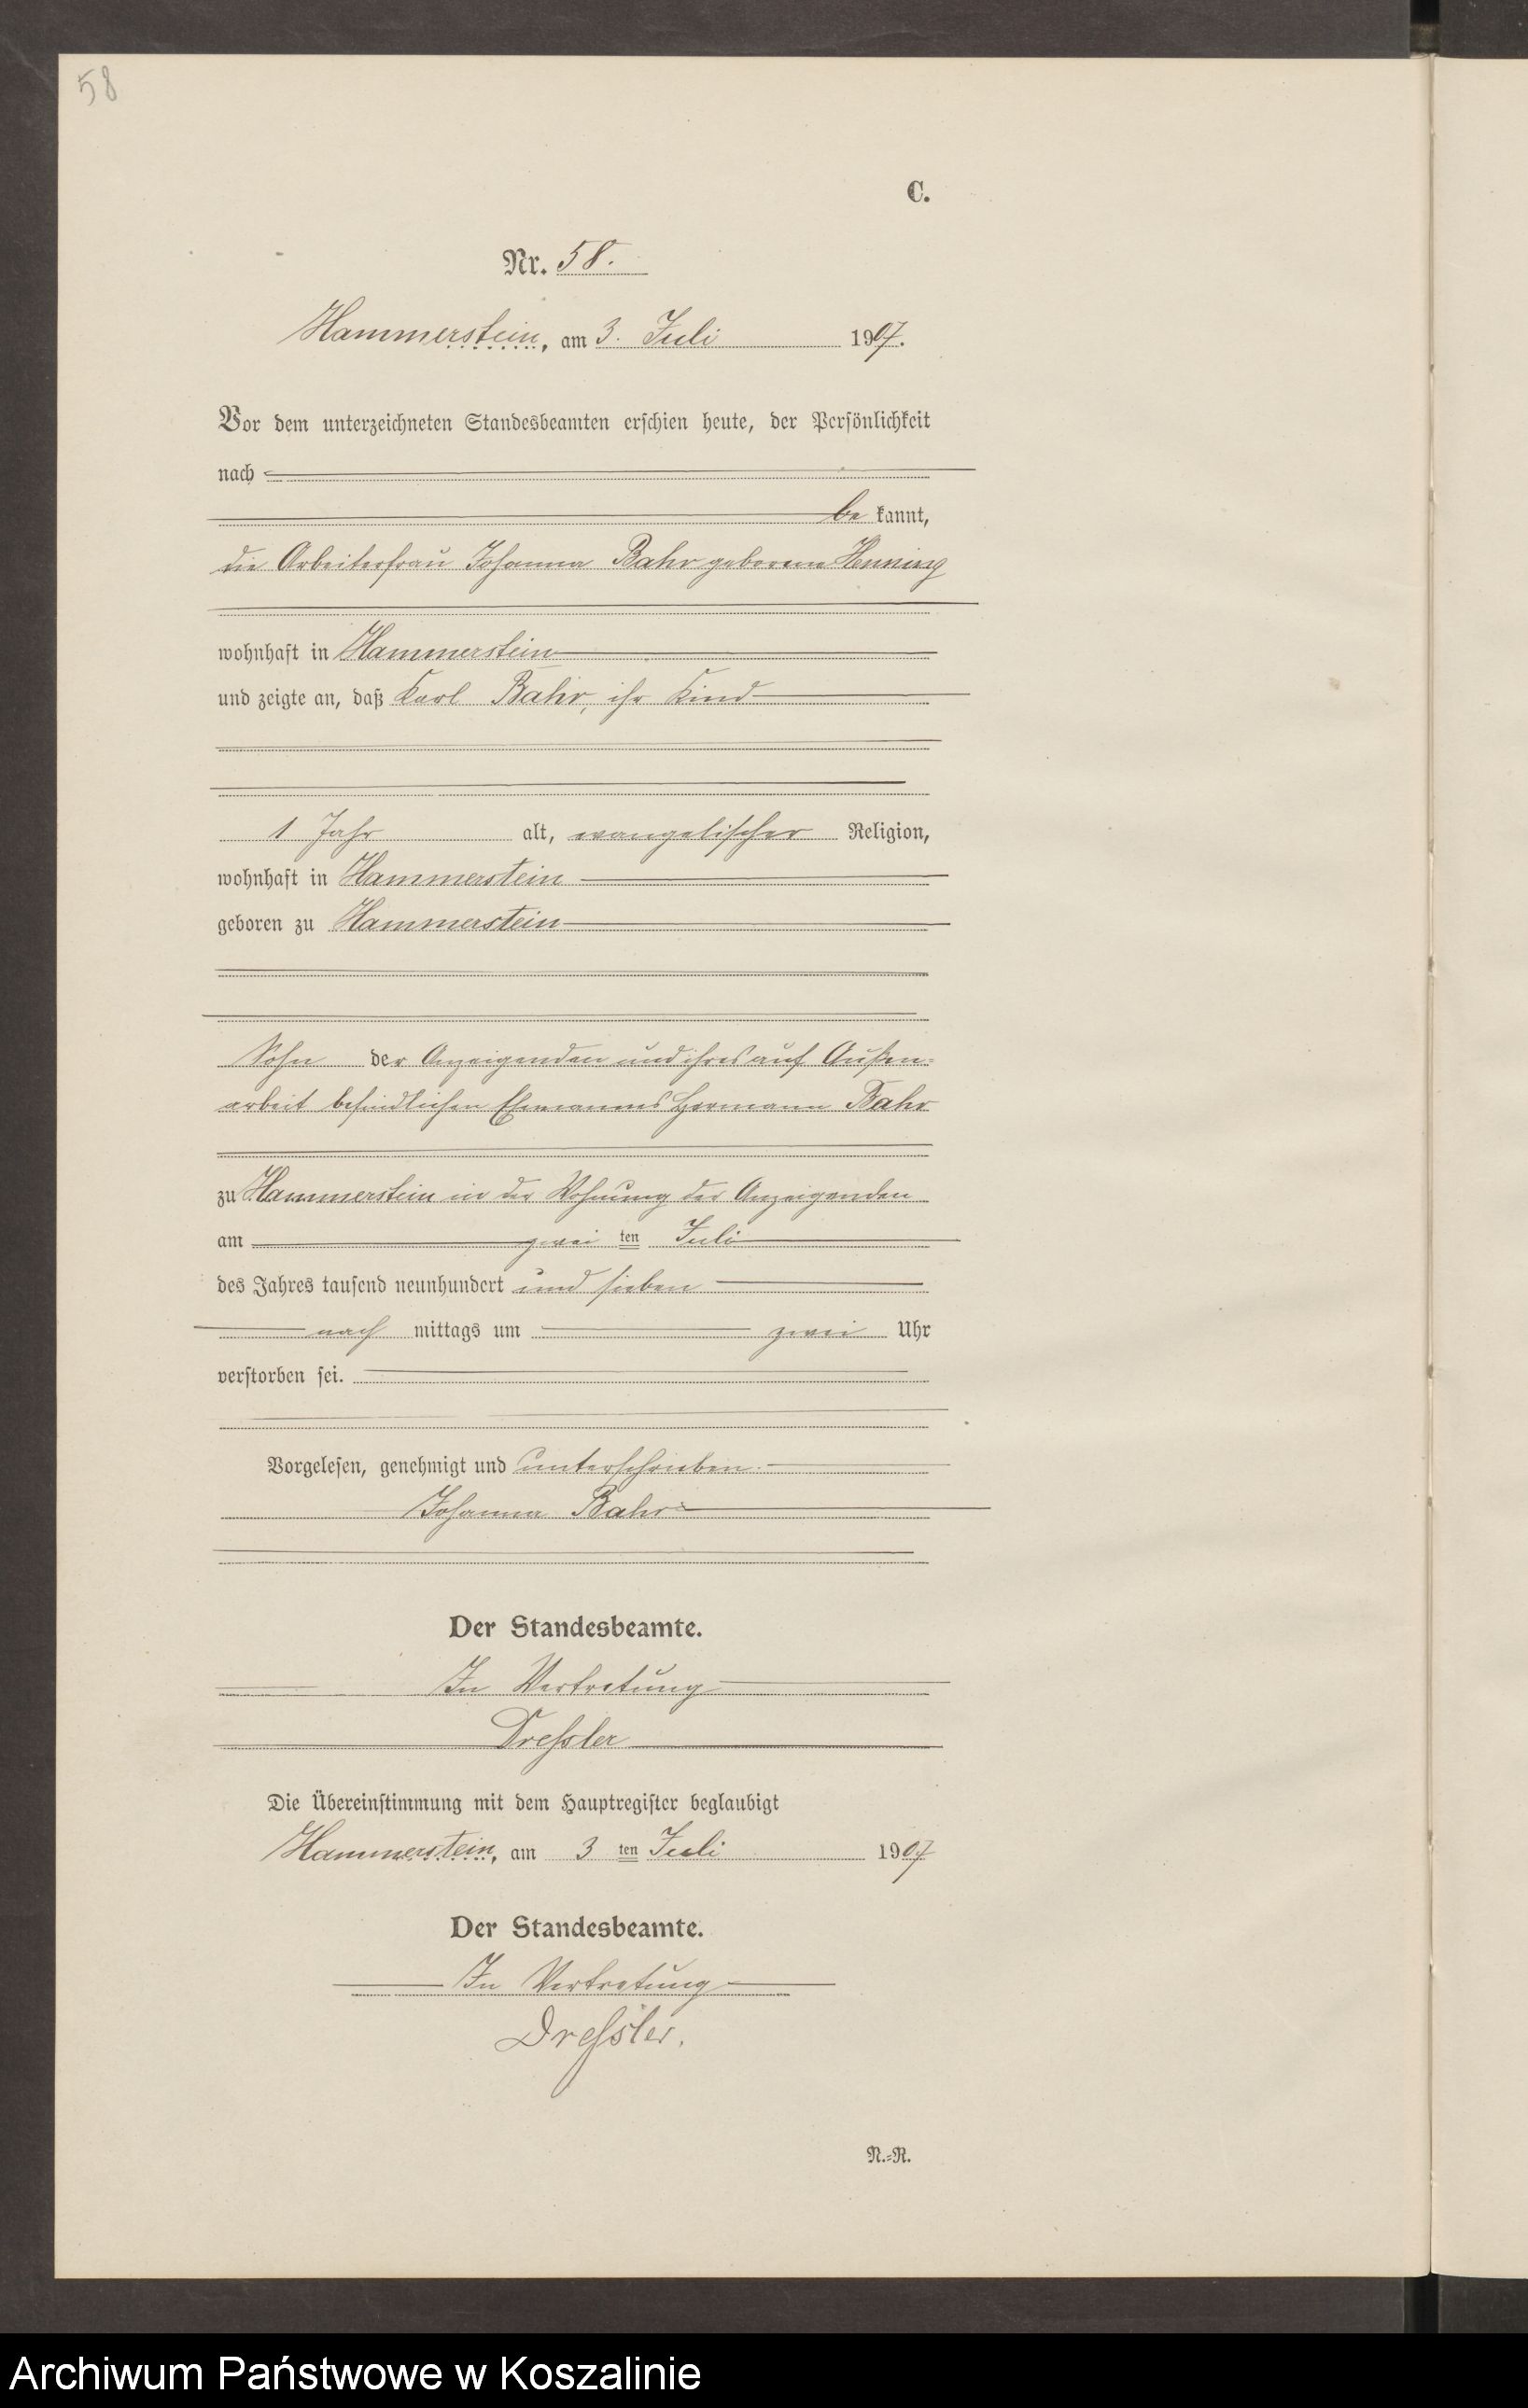 58
C.
Nr. 58.
Hammerstein, am 3. Juli 1907.
Vor dem unterzeichneten Standesbeamten erschien heute, der Persönlichkeit
nach
be kannt,
die Arbeiterfrau Johanna Bahr geborene Henning
wohnhaft in Hammerstein
und zeigte an, daß Karl Bahr, ihr Kind
1 Jahr alt, evangelischer Religion,
wohnhaft in Hammerstein
geboren zu Hammerstein
Sohn der Anzeigenden und ihres auf Außen-
arbeit befindlichen Ehemannes Hermann Bahr
zu Hammerstein in der Wohnung der Anzeigenden
am zwei ten Juli
des Jahres tausend neunhundert und sieben
nach mittags um zwei Uhr
verstorben sei.
Vorgelesen, genehmigt und unterschrieben.
Johanna Bahr
Der Standesbeamte.
In Vertretung
Dressler
Die Übereinstimmung mit dem Hauptregister beglaubigt
Hammerstein, am 3 ten Juli 1907
Der Standesbeamte.
In Vertretung
Dressler.
N.-R.
Archiwum Państwowe w Koszalinie